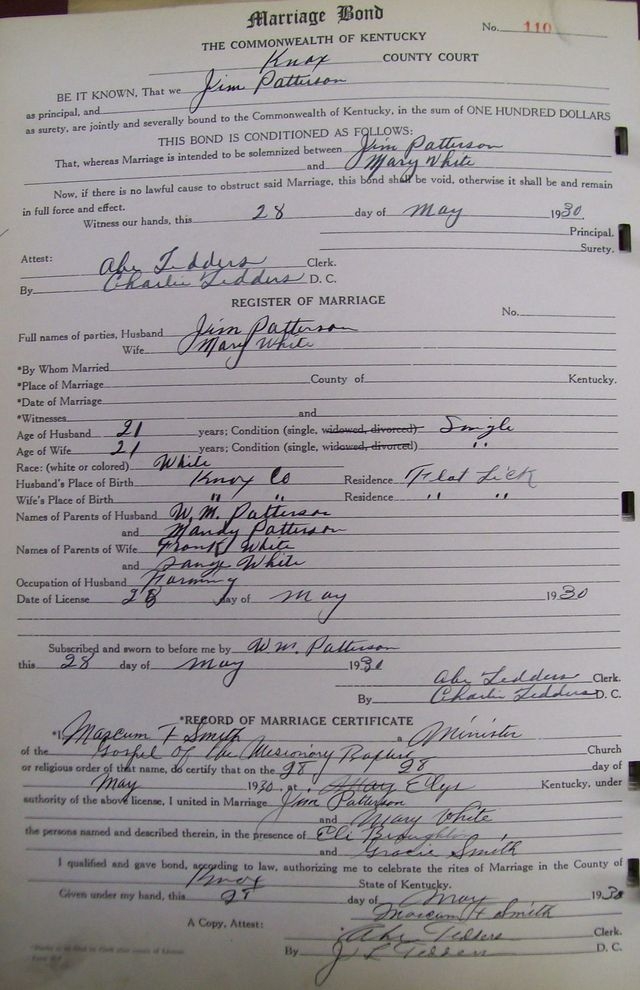 Marriage Bond
No. 110
THE COMMONWEALTH OF KENTUCKY
Knox COUNTY COURT
BE IT KNOWN, That we Jim Patterson
as principal, and
as surety, are jointly and severally bound to the Commonwealth of Kentucky, in the sum of ONE HUNDRED DOLLARS
THIS BOND IS CONDITIONED AS FOLLOWS:
That, whereas Marriage is intended to be solemnized between Jim Patterson
and Mary White
Now, if there is no lawful cause to obstruct said Marriage, this bond shall be void, otherwise it shall be and remain
in full force and effect.
Witness our hands, this 28 day of May 1930.
Principal.
Surety.
Attest: Abe Tedders Clerk.
By Charlie Tedders D. C.
REGISTER OF MARRIAGE
No.
Full names of parties, Husband Jim Patterson
Wife Mary White
*By Whom Married
*Place of Marriage County of Kentucky.
*Date of Marriage
*Witnesses and
Age of Husband 21 years; Condition (single, widowed, divorced) Single
Age of Wife 21 years; Condition (single, widowed, divorced) "
Race: (white or colored) White
Husband's Place of Birth Knox Co Residence Flat Lick
Wife's Place of Birth " " Residence " "
Names of Parents of Husband W. M. Patterson
and Mandy Patterson
Names of Parents of Wife Frank White
and White
Occupation of Husband Farming
Date of License 28 day of May 1930
Subscribed and sworn to before me by W. M. Patterson
this 28 day of May 1930
Abe Tedders Clerk.
By Charlie Tedders D. C.
*RECORD OF MARRIAGE CERTIFICATE
*I, Marcum F Smith a Minister
of the Gospel of the Missionary Baptist Church
or religious order of that name, do certify that on the 28 28 day of
May 1930, at Ellys Kentucky, under
authority of the above license, I united in Marriage Jim Patterson
and Mary White
the persons named and described therein, in the presence of Eli Broughton
and Gracie Smith
I qualified and gave bond, according to law, authorizing me to celebrate the rites of Marriage in the County of
Knox State of Kentucky.
Given under my hand, this 28 day of May 1930
Marcum F Smith
A Copy, Attest: Abe Tedders Clerk.
By J L Tedders D. C.